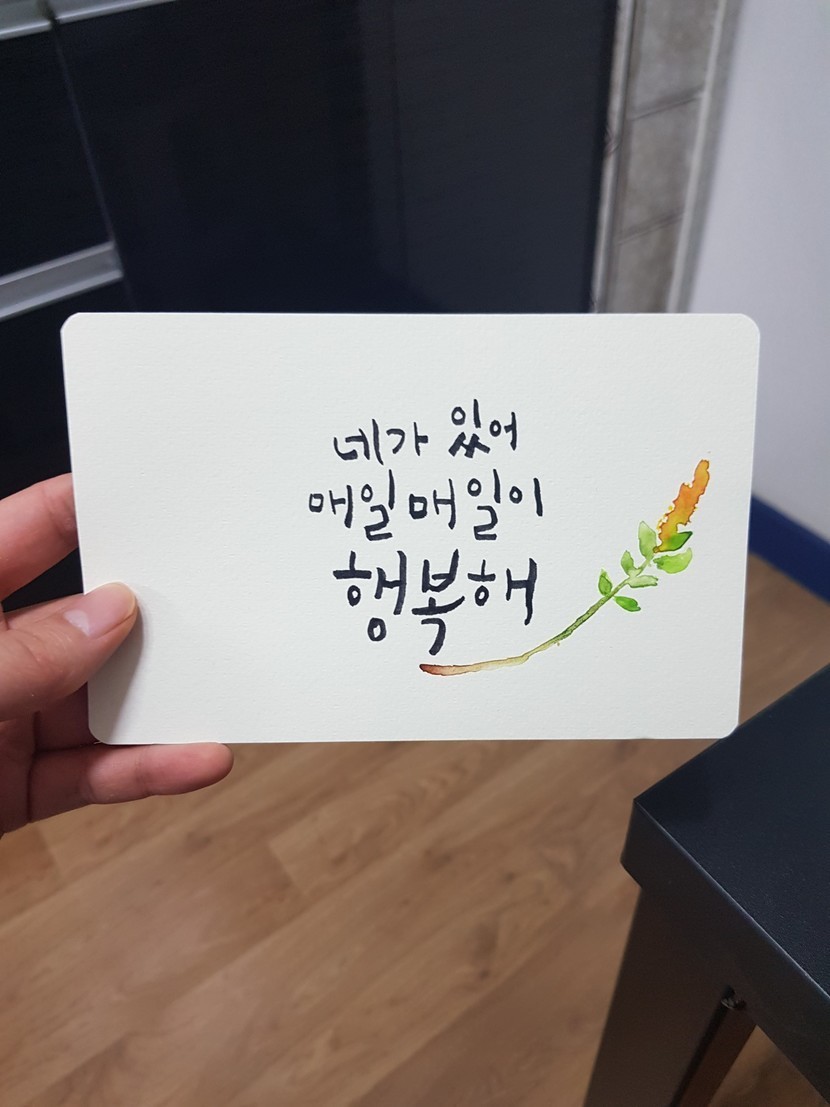 네가 있어
매일매일이
행복해